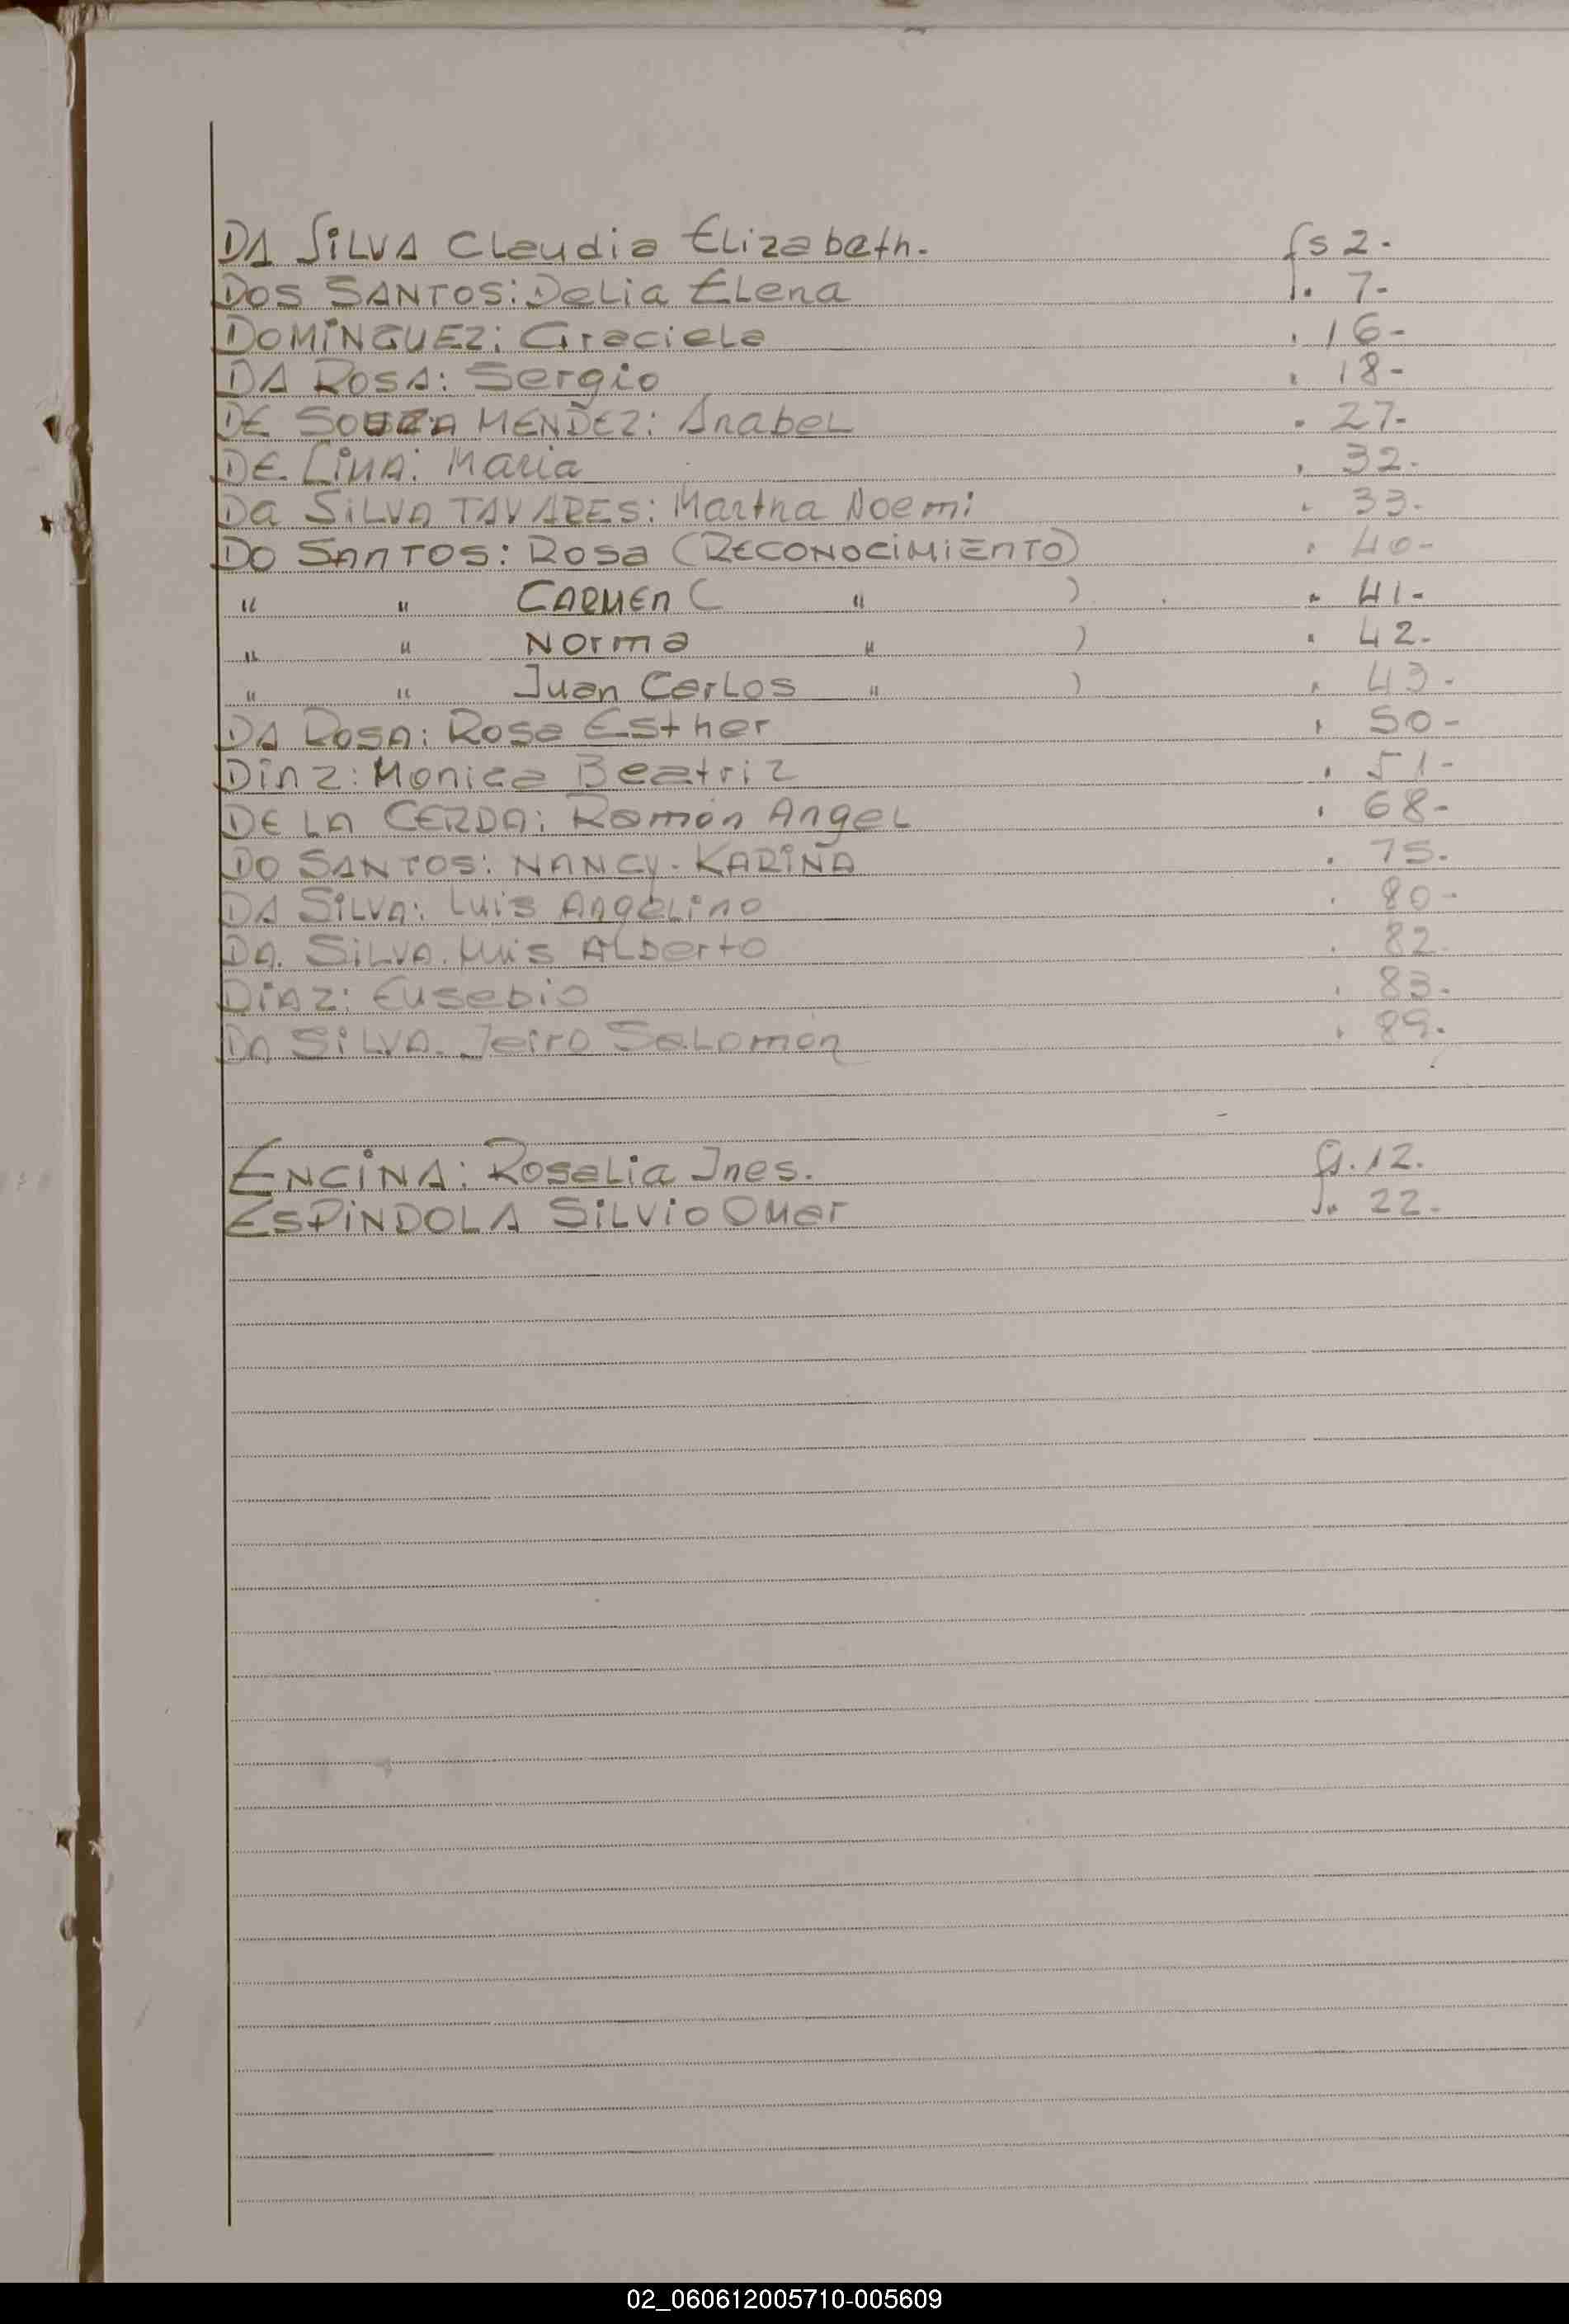 DA SILVA Claudia Elizabeth. fs 2.-
DOS SANTOS: Delia Elena " 7-
DOMINGUEZ: Graciela " 16-
DA ROSA: Sergio " 18-
DE SOUZA MENDEZ: Anabel " 27-
DE LIMA: Maria " 32-
DA SILVA TAVARES: Martha Noemi " 33-
DO SANTOS: Rosa (RECONOCIMIENTO) " 40-
" " CARMEN C " ) " 41-
" " Norma " ) " 42-
" " Juan Carlos " ) " 43-
DA ROSA: Rosa Esther " 50-
DiAZ: Monica Beatriz " 51-
DE LA CERDA: Ramón Angel " 68-
DO SANTOS: NANCY-KARINA " 75-
DA SILVA: Luis Angelino " 80-
DA. SILVA. Luis Alberto " 82-
DIAZ: Eusebio " 83-
DA SILVA. Jairo Salomón " 89-
ENCINA: Rosalia Ines. fs. 12.
ESPINDOLA SILVIO Omar " 22-
02_060612005710-005609